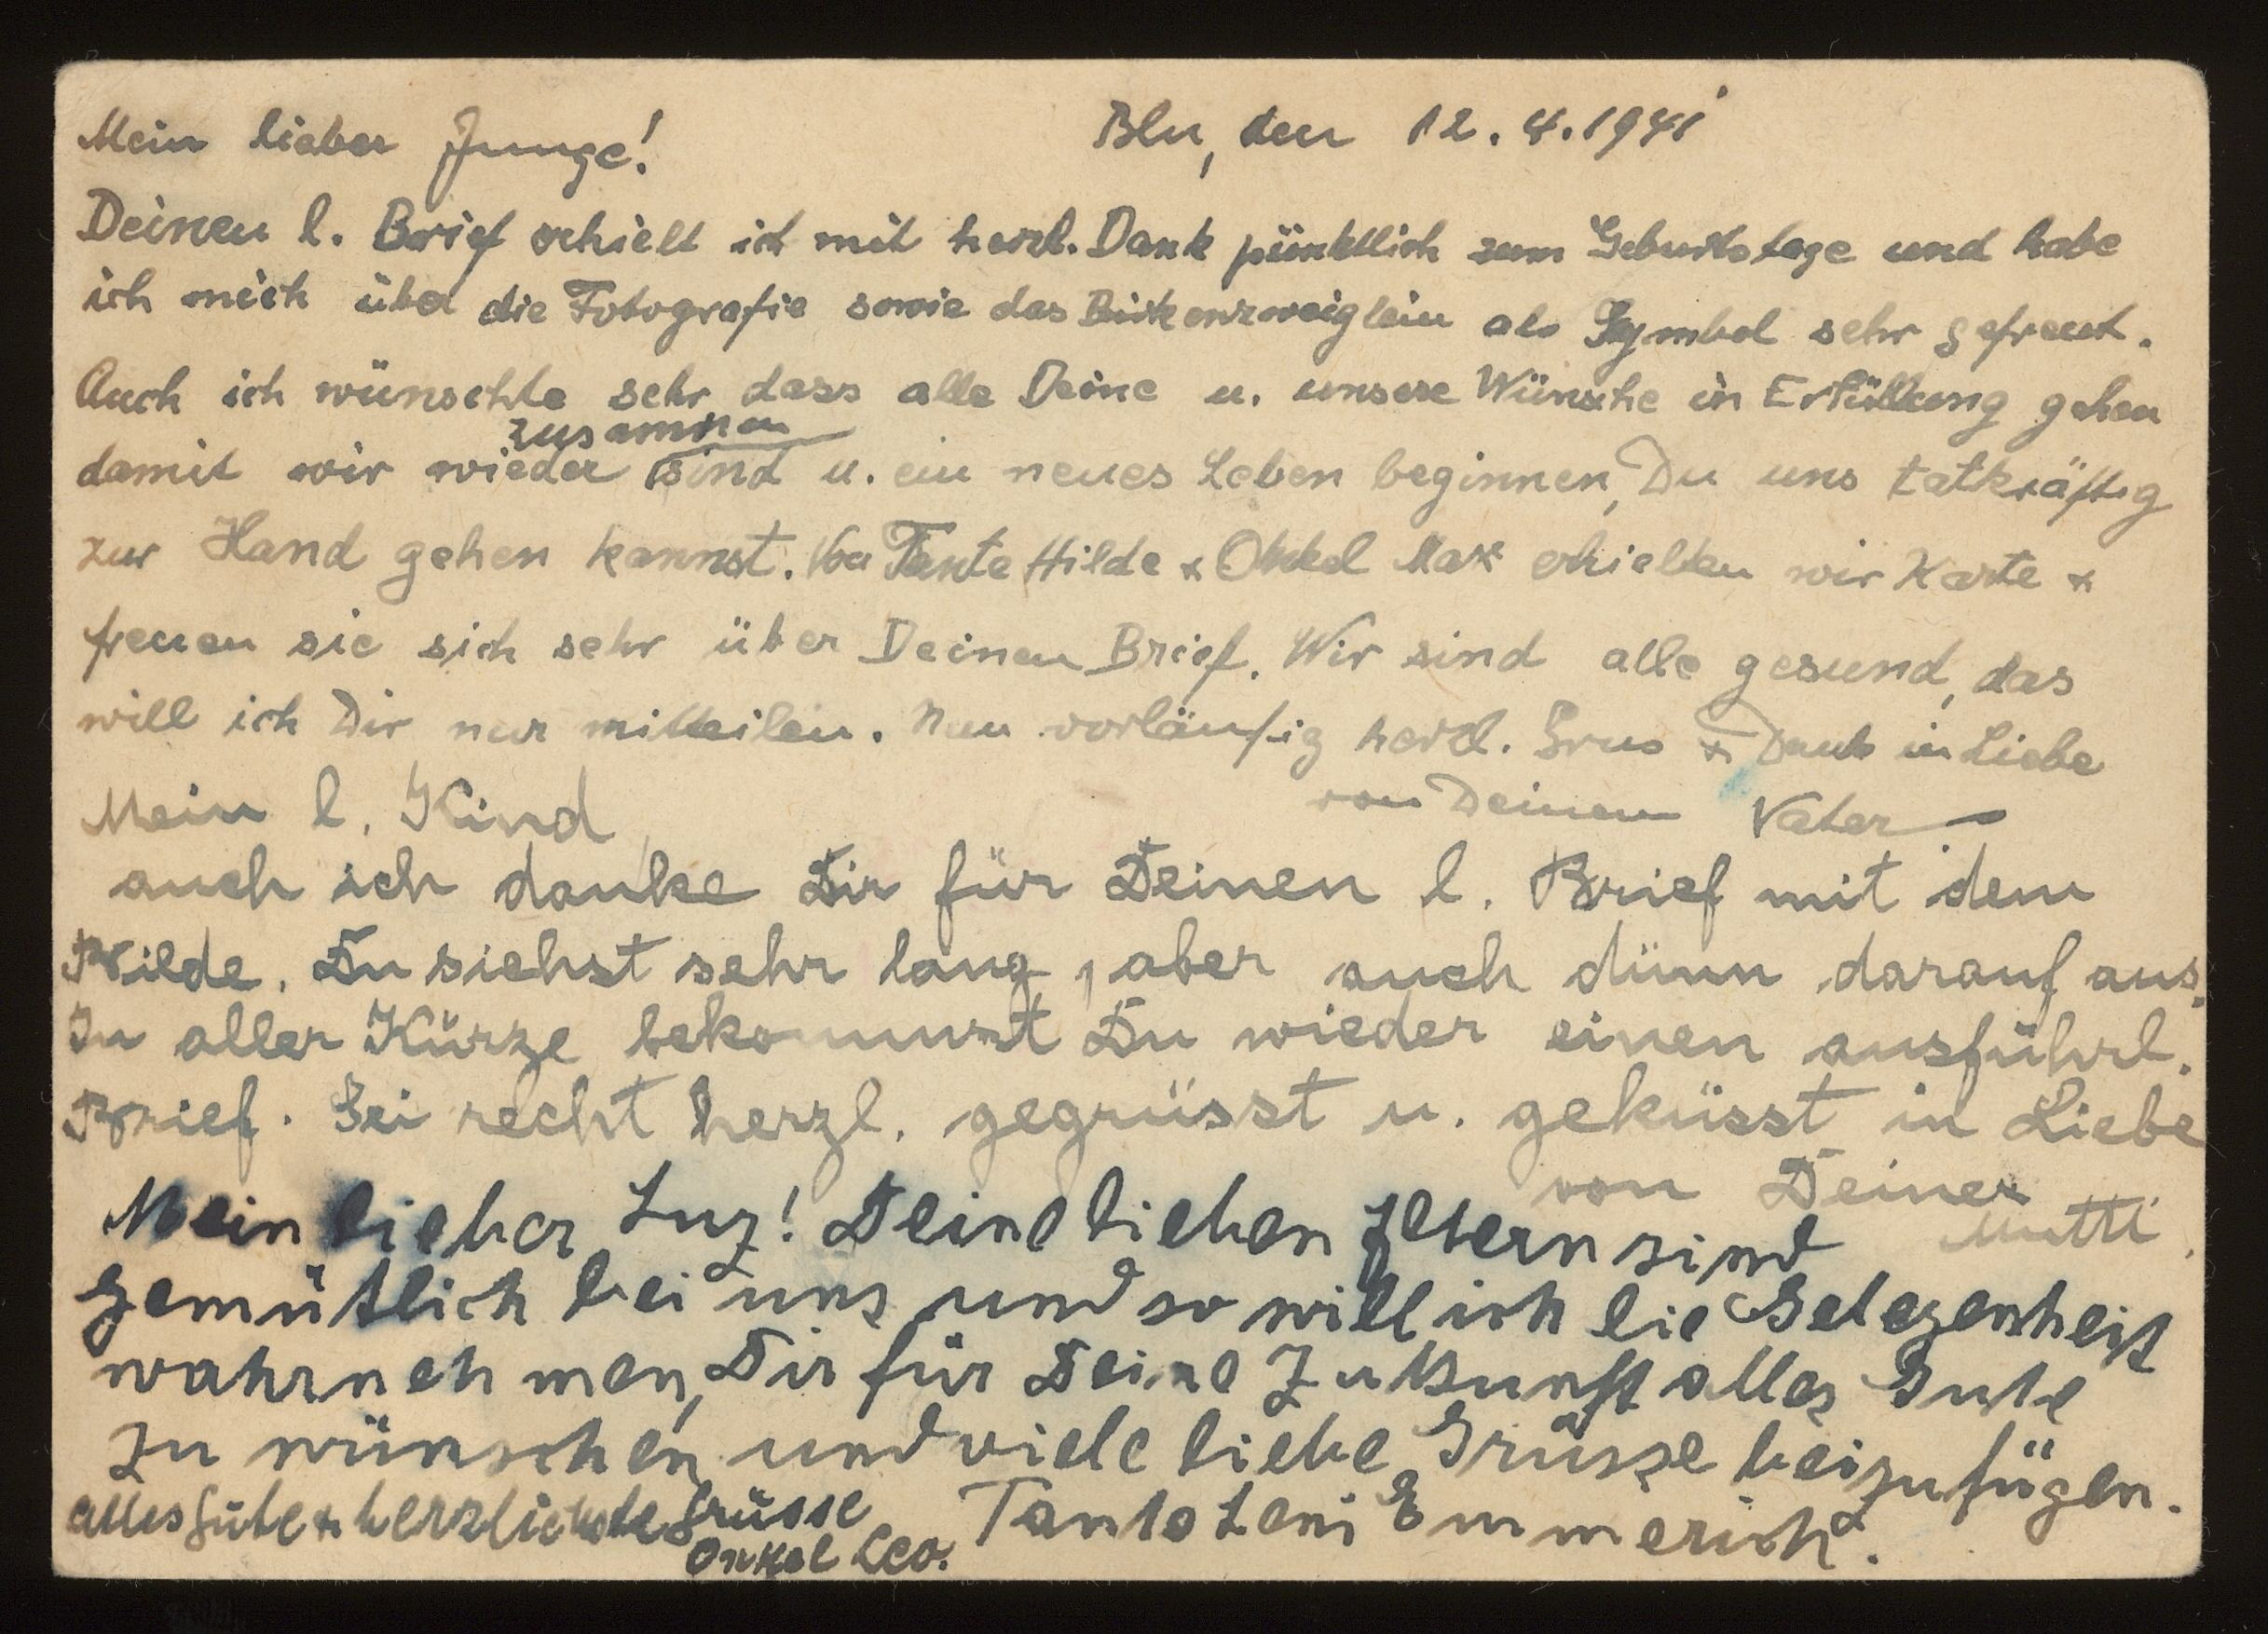 Mein lieber Junge! Bln, den 12.4.1941
Deinen l. Brief erhielt ich mit herzl. Dank pünktlich zum Geburtstage und habe
ich mich über die Fotografie sowie das Birkenzweiglein als Symbol sehr gefreut.
Auch ich wünschte sehr dass alle Deine u. unsere Wünsche in Erfüllung gehen
zusammen
damit wir wieder sind u. ein neues Leben beginnen, Du uns tatkräftig
zur Hand gehen kannst. Von Tante Hilde & Onkel Max erhielten wir Karte &
freuen sie sich sehr über Deinen Brief. Wir sind alle gesund, das
will ich Dir nur mitteilen. Nun vorläufig herzl. Grus & Dank in Liebe
von Deinem Vater
Mein l. Kind,
auch ich danke Dir für Deinen l. Brief mit dem
Bilde. Du siehst sehr lang, aber auch dünn darauf aus.
In aller Kürze bekommst Du wieder einen ausführl.
Brief. Sei recht herzl. gegrüsst u. geküsst in Liebe
von Deiner
Mutti.
Mein lieber Luz! Deine lieben Eltern sind
gemütlich bei uns und so will ich die Gelegenheit
wahrnehmen, Dir für Deine Zukunft alles Gute
zu wünschen und viele liebe Grüsse beizufügen.
Tante Leni Emmerich.
alles Gute & herzlichste Grüsse
Onkel Leo.